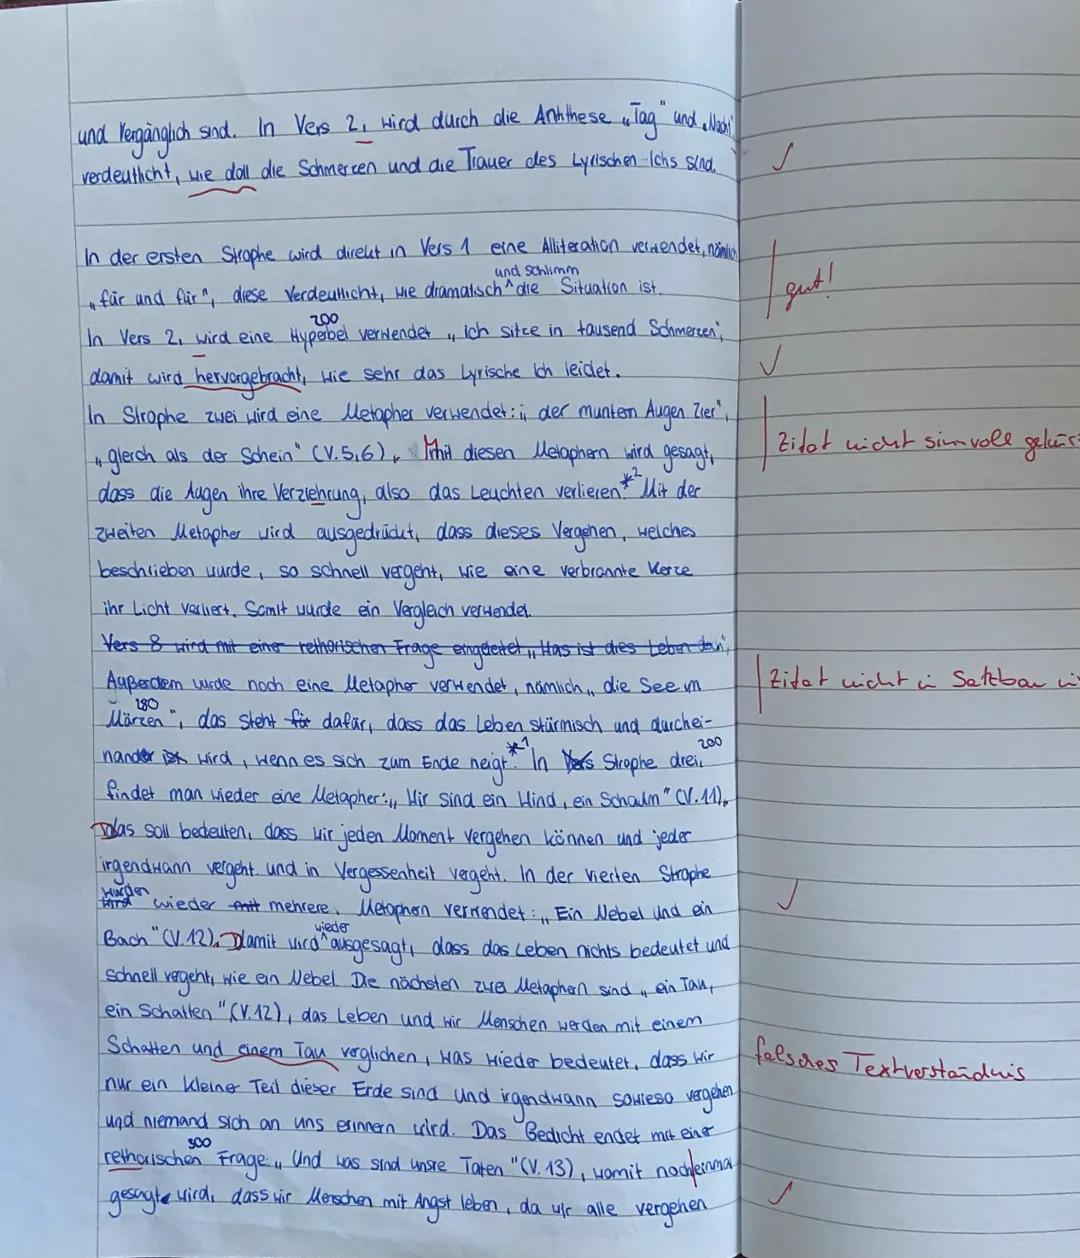 und Vergänglich sind. In Vers 2, wird durch die Antithese „Tag" und „Nacht"
verdeutlicht, wie doll die Schmerzen und die Trauer des Lyrischen-Ichs sind.
In der ersten Strophe wird direkt in Vers 1 eine Alliteration verwendet, nämlich
und schlimm
„für und für", diese Verdeutlicht, wie dramatisch ^ die Situation ist.
gut!
200
In Vers 2, wird eine Hyperbel verwendet „ich sitze in tausend Schmerzen",
damit wird hervorgebracht, wie sehr das Lyrische Ich leidet.
In Strophe zwei wird eine Metapher verwendet: „der muntern Augen Zier",
Zitat nicht sinnvoll
„gleich als der Schein" (V.5,6). Mit diesen Metaphern wird gesagt,
dass die Augen ihre Verziehrung, also das Leuchten verlieren.*2 Mit der
zweiten Metapher wird ausgedrückt, dass dieses Vergehen, welches
beschrieben wurde, so schnell vergeht, wie eine verbrannte Kerze
ihr Licht verliert. Somit wurde ein Vergleich verwendet.
Vers 8 wird mit einer rethorischen Frage eingeleitet „Was ist dies Leben doch",
Außerdem wurde noch eine Metapher verwendet, nämlich „die See im
Zitat nicht in Satzbau
180
Märzen", das steht für dafür, dass das Leben stürmisch und durchei-
nander ist wird, wenn es sich zum Ende neigt.*1 In Vers Strophe drei,
200
findet man wieder eine Metapher: „Wir sind ein Wind, ein Schaum" (V.11).
Das soll bedeuten, dass wir jeden Moment vergehen können und jeder
irgendwann vergeht und in Vergessenheit vergeht. In der vierten Strophe
wurden
wird wieder mit mehrere Metaphern verwendet: „Ein Nebel und ein
wieder
Bach" (V.12). Damit wird ^ ausgesagt, dass das Leben nichts bedeutet und
schnell vegeht, wie ein Nebel. Die nächsten zwei Metaphern sind „ein Tau,
ein Schatten" (V.12), das Leben und wir Menschen werden mit einem
Schatten und einem Tau verglichen, was wieder bedeutet, dass wir
falsches Textverständnis
nur ein kleiner Teil dieser Erde sind und irgendwann sowieso vergehen
und niemand sich an uns erinnern wird. Das Gedicht endet mit einer
300
rethorischen Frage: „Und was sind unsre Taten" (V.13), womit nocheinmal
gesagt wird, dass wir Menschen mit Angst leben, da wir alle vergehen